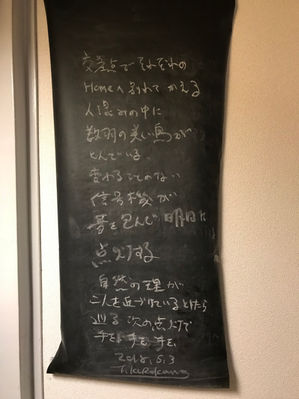 交差点でそれぞれの
Homeへ別れて かえる
人混みの中に
数羽の美しい鳥が
とんでいる
変わることのない
信号機が
夢を包んで 明日に
点灯する
自然の理が
二人を近づけているとしたら
巡る 次の点灯で
手を 手を 手を
2018.5.3
T.KUROKAWA